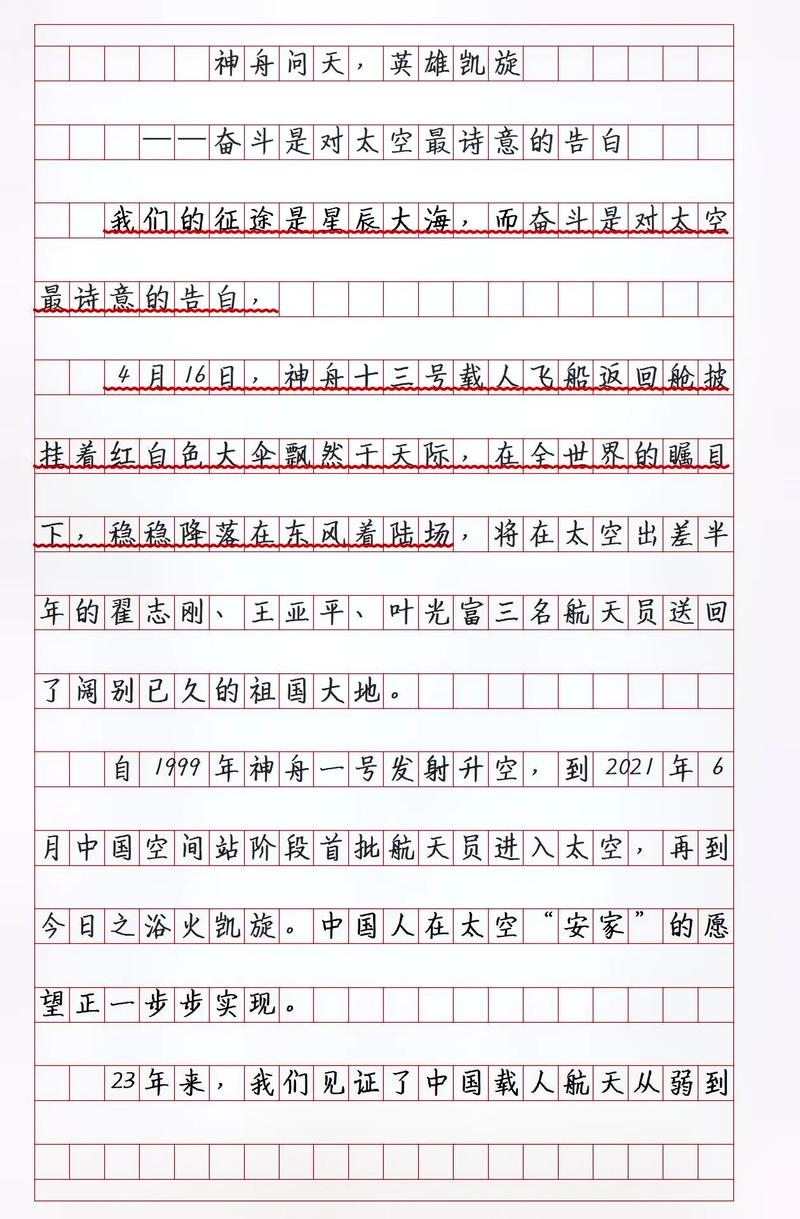 神舟问天，英雄凯旋
——奋斗是对太空最诗意的告白
我们的征途是星辰大海，而奋斗是对太空
最诗意的告白，
4月16日，神舟十三号载人飞船返回舱披
挂着红白色大伞飘然于天际，在全世界的瞩目
下，稳稳降落在东风着陆场，将在太空出差半
年的翟志刚、王亚平、叶光富三名航天员送回
了阔别已久的祖国大地。
自1999年神舟一号发射升空，到2021年6
月中国空间站阶段首批航天员进入太空，再到
今日之浴火凯旋。中国人在太空“安家”的愿
望正一步步实现。
23年来，我们见证了中国载人航天从弱到